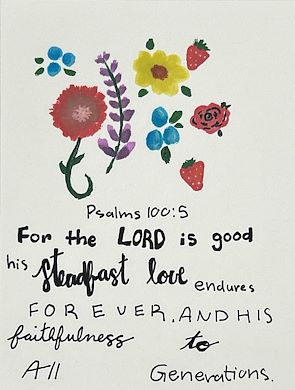 Psalms 100:5
For the LORD is good
his steadfast love endures
FOREVER, AND HIS
faithfulness to
All Generations.